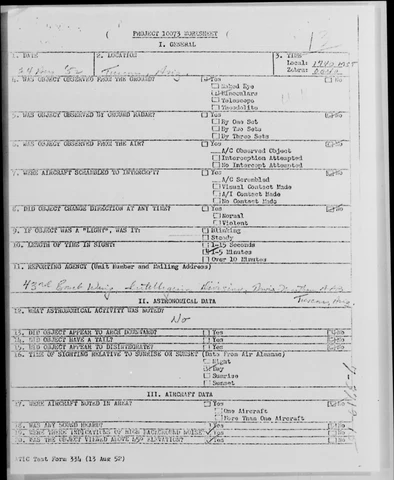 ( PROJECT 10073 WORKSHEET (
I. GENERAL
1. DATE 2. LOCATION 3. TIME
Local:
Zebra:
Tucson, Ariz
4. WAS OBJECT OBSERVED FROM THE GROUND? Yes No
Naked Eye
Binoculars
Telescope
Theodolite
5. WAS OBJECT OBSERVED BY GROUND RADAR? Yes No
By One Set
By Two Sets
By Three Sets
6. WAS OBJECT OBSERVED FROM THE AIR? Yes No
A/C Observed Object
Interception Attempted
No Intercept Attempted
7. WERE AIRCRAFT SCRAMBLED TO INTERCEPT? Yes No
A/C Scrambled
Visual Contact Made
A/I Contact Made
No Contact Made
8. DID OBJECT CHANGE DIRECTION AT ANY TIME? Yes No
Normal
Violent
9. IF OBJECT WAS A "LIGHT", WAS IT: Blinking
Steady
10. LENGTH OF TIME IN SIGHT: 1-15 Seconds
1-5 Minutes
Over 10 Minutes
11. REPORTING AGENCY (Unit Number and Mailing Address)
43rd Bomb Wing Intelligence Division, Davis
Tucson, Ariz.
II. ASTRONOMICAL DATA
12. WHAT ASTRONOMICAL ACTIVITY WAS NOTED?
No
13. DID OBJECT APPEAR TO ARCH DOWNWARD? Yes No
14. DID OBJECT HAVE A TAIL? Yes No
15. DID OBJECT APPEAR TO DISINTEGRATE? Yes No
16. TIME OF SIGHTING RELATIVE TO SUNRISE OR SUNSET (Data From Air Almanac)
Night
Day
Sunrise
Sunset
III. AIRCRAFT DATA
17. WERE AIRCRAFT NOTED IN AREA? Yes No
One Aircraft
More Than One Aircraft
18. WAS ANY SOUND HEARD? Yes No
19. WERE THERE INDICATIONS OF HIGH BACKGROUND NOISE Yes No
20. WAS THE OBJECT VIEWED ABOVE 45° ELEVATION? Yes No
ATIC Test Form 334 (13 Aug 52)